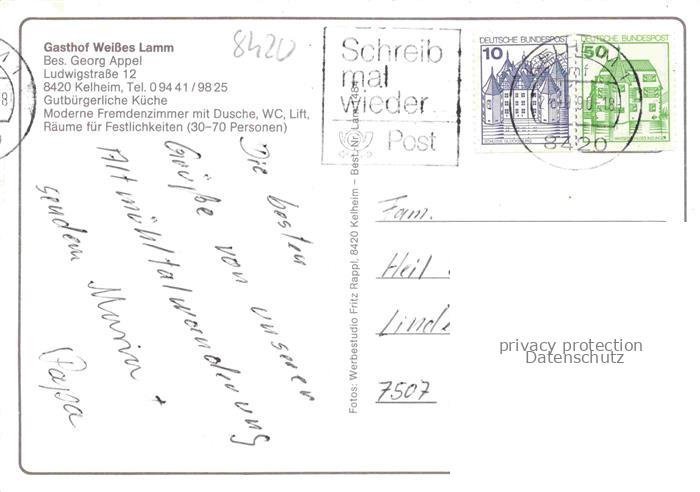 Gasthof Weißes Lamm
Bes. Georg Appel
Ludwigstraße 12
8420 Kelheim, Tel. 0 94 41 / 98 25
Gutbürgerliche Küche
Moderne Fremdenzimmer mit Dusche, WC, Lift,
Räume für Festlichkeiten (30–70 Personen)
8420
Schreib
mal
wieder
Post
DEUTSCHE BUNDESPOST
10
SCHLOSS GLÜCKSBURG
DEUTSCHE BUNDESPOST
50
8420
Die besten
Grüße von unserer
Altmühltalwanderung
senden Maria +
Papa
Fotos: Werbestudio Fritz Rappl, 8420 Kelheim – Best. Nr. Lam
Fam.
Heil
Linde
7507
privacy protection
Datenschutz